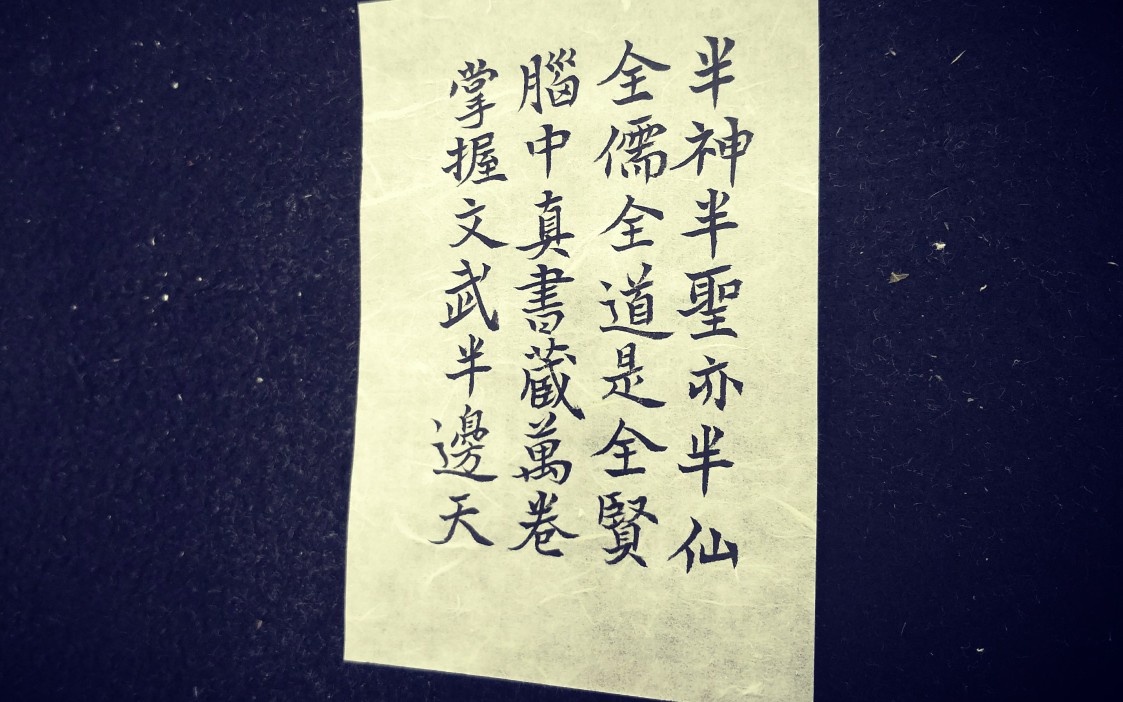 半神半聖亦半仙
全儒全道是全賢
腦中真書藏萬卷
掌握文武半邊天